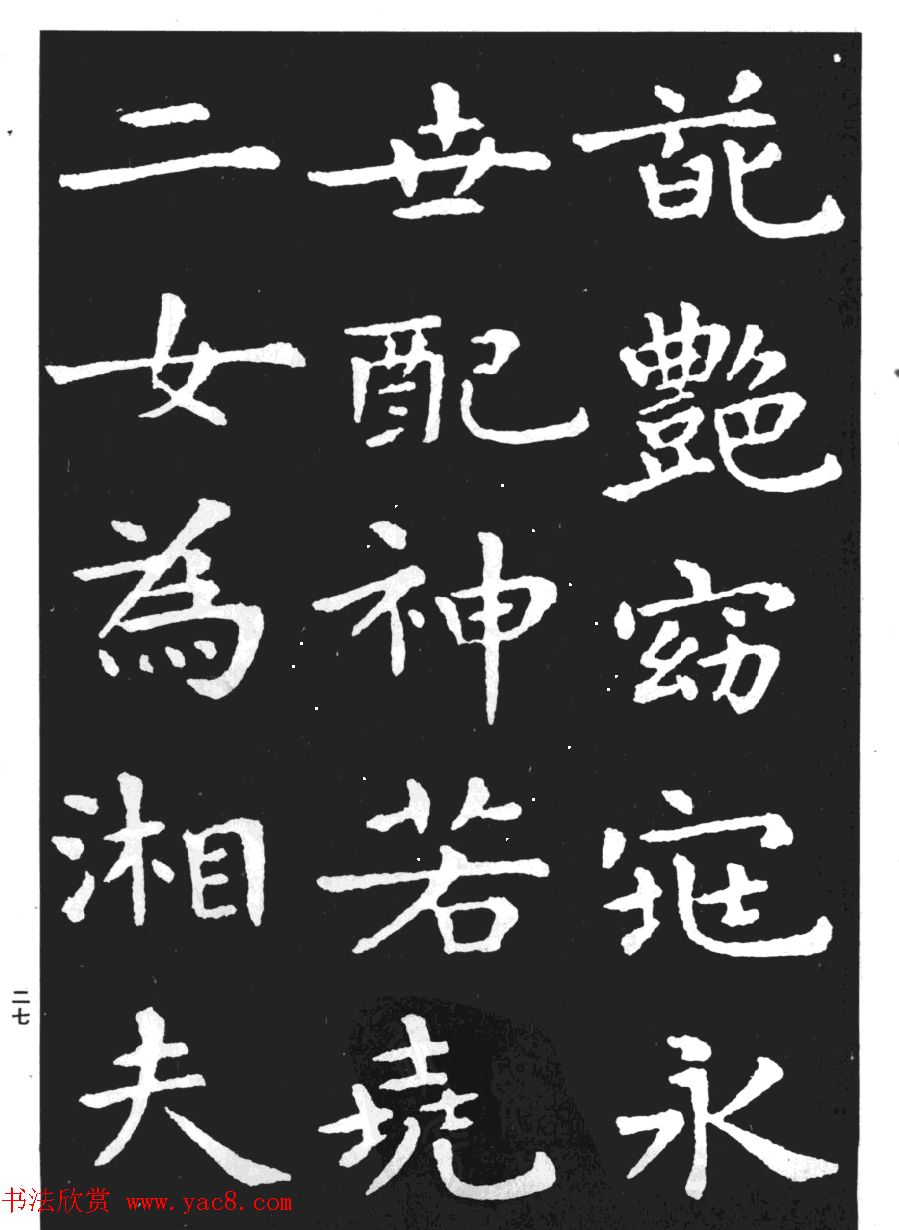 葩艷窈窕永
世配神若堯
二女為湘夫
二七
书法欣赏 www.yac8.com